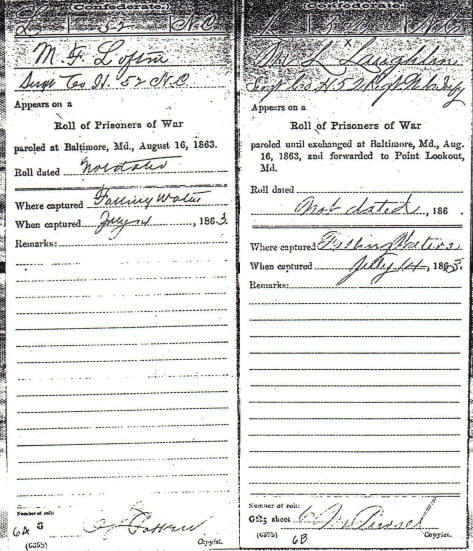 Confederate.
L 52 N.C.
M. F. Loftin
Sergt Co. H. 52 N.C.
Appears on a
Roll of Prisoners of War
paroled at Baltimore, Md., August 16, 1863.
Roll dated Not dated
Where captured Falling Waters
When captured July 14, 1863.
Remarks:
Number of roll:
6A 8
(639b) Copyist.
Confederate.
L 52 N.C.
x
M L Laughlin
Sergt Co H 52 Regt N.C. Infy
Appears on a
Roll of Prisoners of War
paroled until exchanged at Baltimore, Md., Aug.
16, 1863, and forwarded to Point Lookout,
Md.
Roll dated
Not dated, 186
Where captured Falling Waters
When captured July 14, 1863.
Remarks:
Number of roll:
sheet
(639b) 6B Copyist.